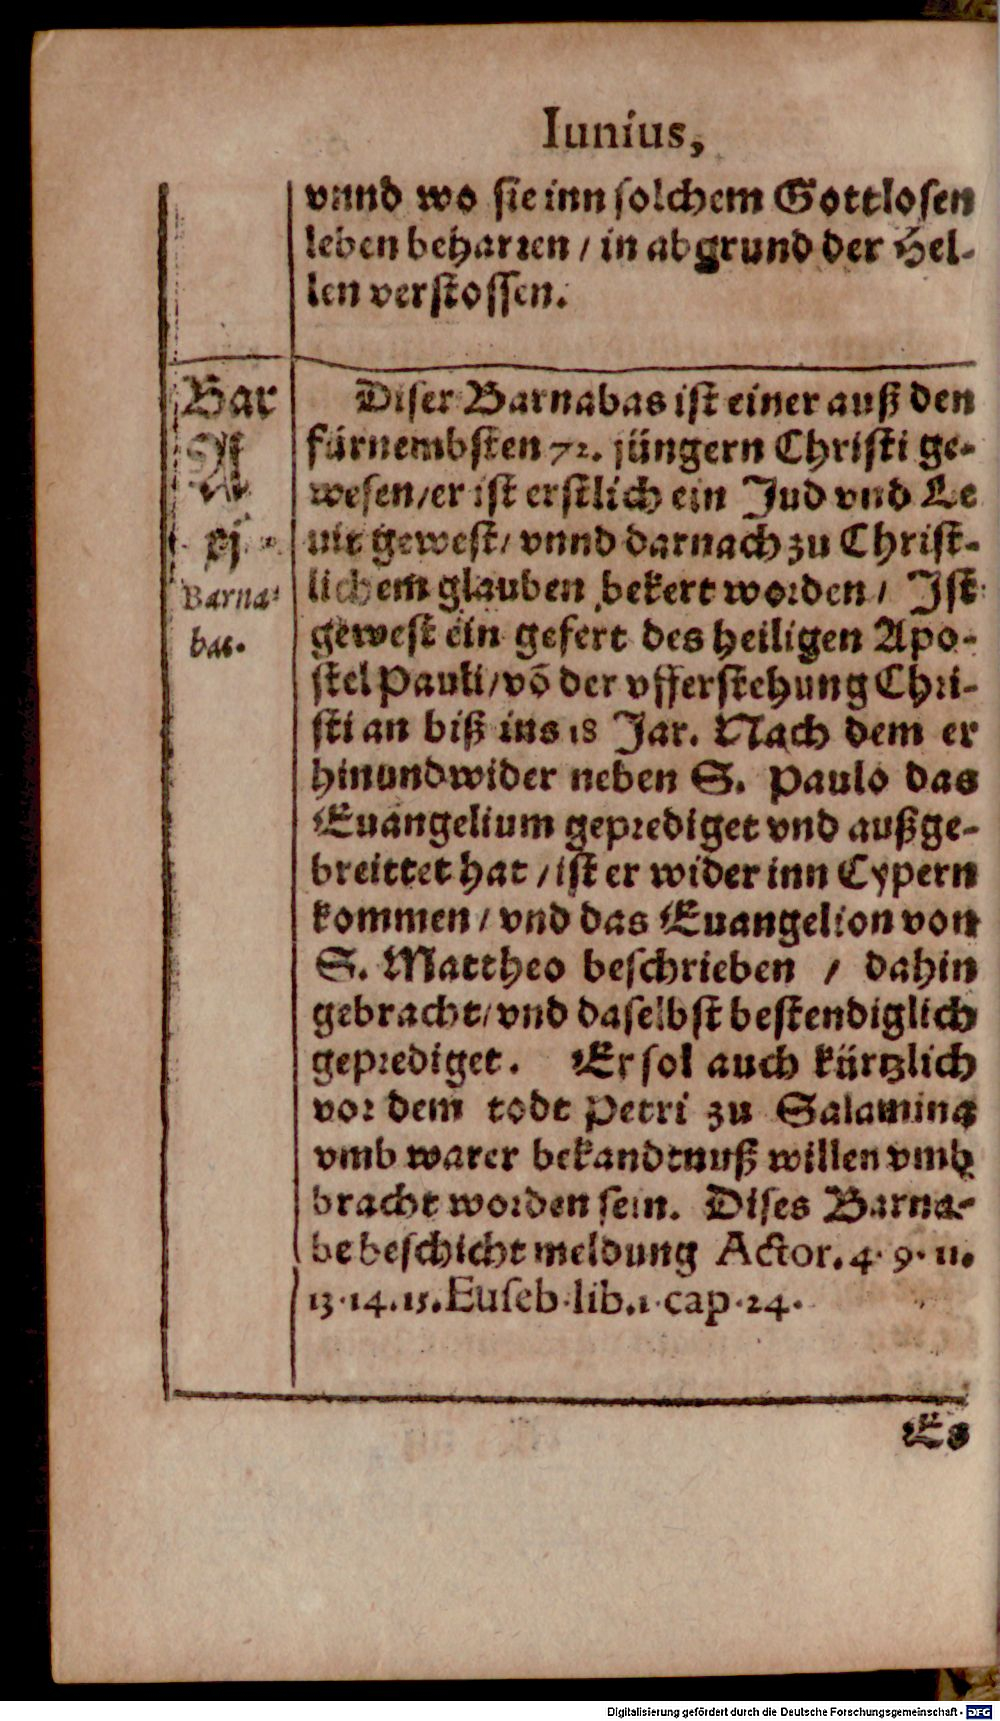 Iunius,
vnnd wo sie inn solchem Gottlosen
leben beharren / in abgrund der Hel-
len verstossen.
Bar
A
xj
Barna-
bas.
Diser Barnabas ist einer auß den
fürnembsten 72. jüngern Christi ge-
wesen/er ist erstlich ein Jud vnd Le
uit gewest/ vnnd darnach zu Christ-
lichem glauben bekert worden / Ist
gewest ein gefert des heiligen Apo-
stel Pauli/võ der vfferstehung Chri-
sti an biß ins 18 Jar. Nach dem er
hinundwider neben S. Paulo das
Euangelium geprediget vnd außge-
breittet hat / ist er wider inn Cypern
kommen / vnd das Euangelion von
S. Mattheo beschrieben / dahin
gebracht/ vnd daselbst bestendiglich
geprediget. Er sol auch kürtzlich
vor dem todt Petri zu Salamina
vmb warer bekandtnuß willen vmb
bracht worden sein. Dises Barna-
be beschicht meldung Actor. 4. 9. 11.
13. 14. 15. Euseb. lib. 1. cap. 24.
Es
Digitalisierung gefördert durch die Deutsche Forschungsgemeinschaft - DFG